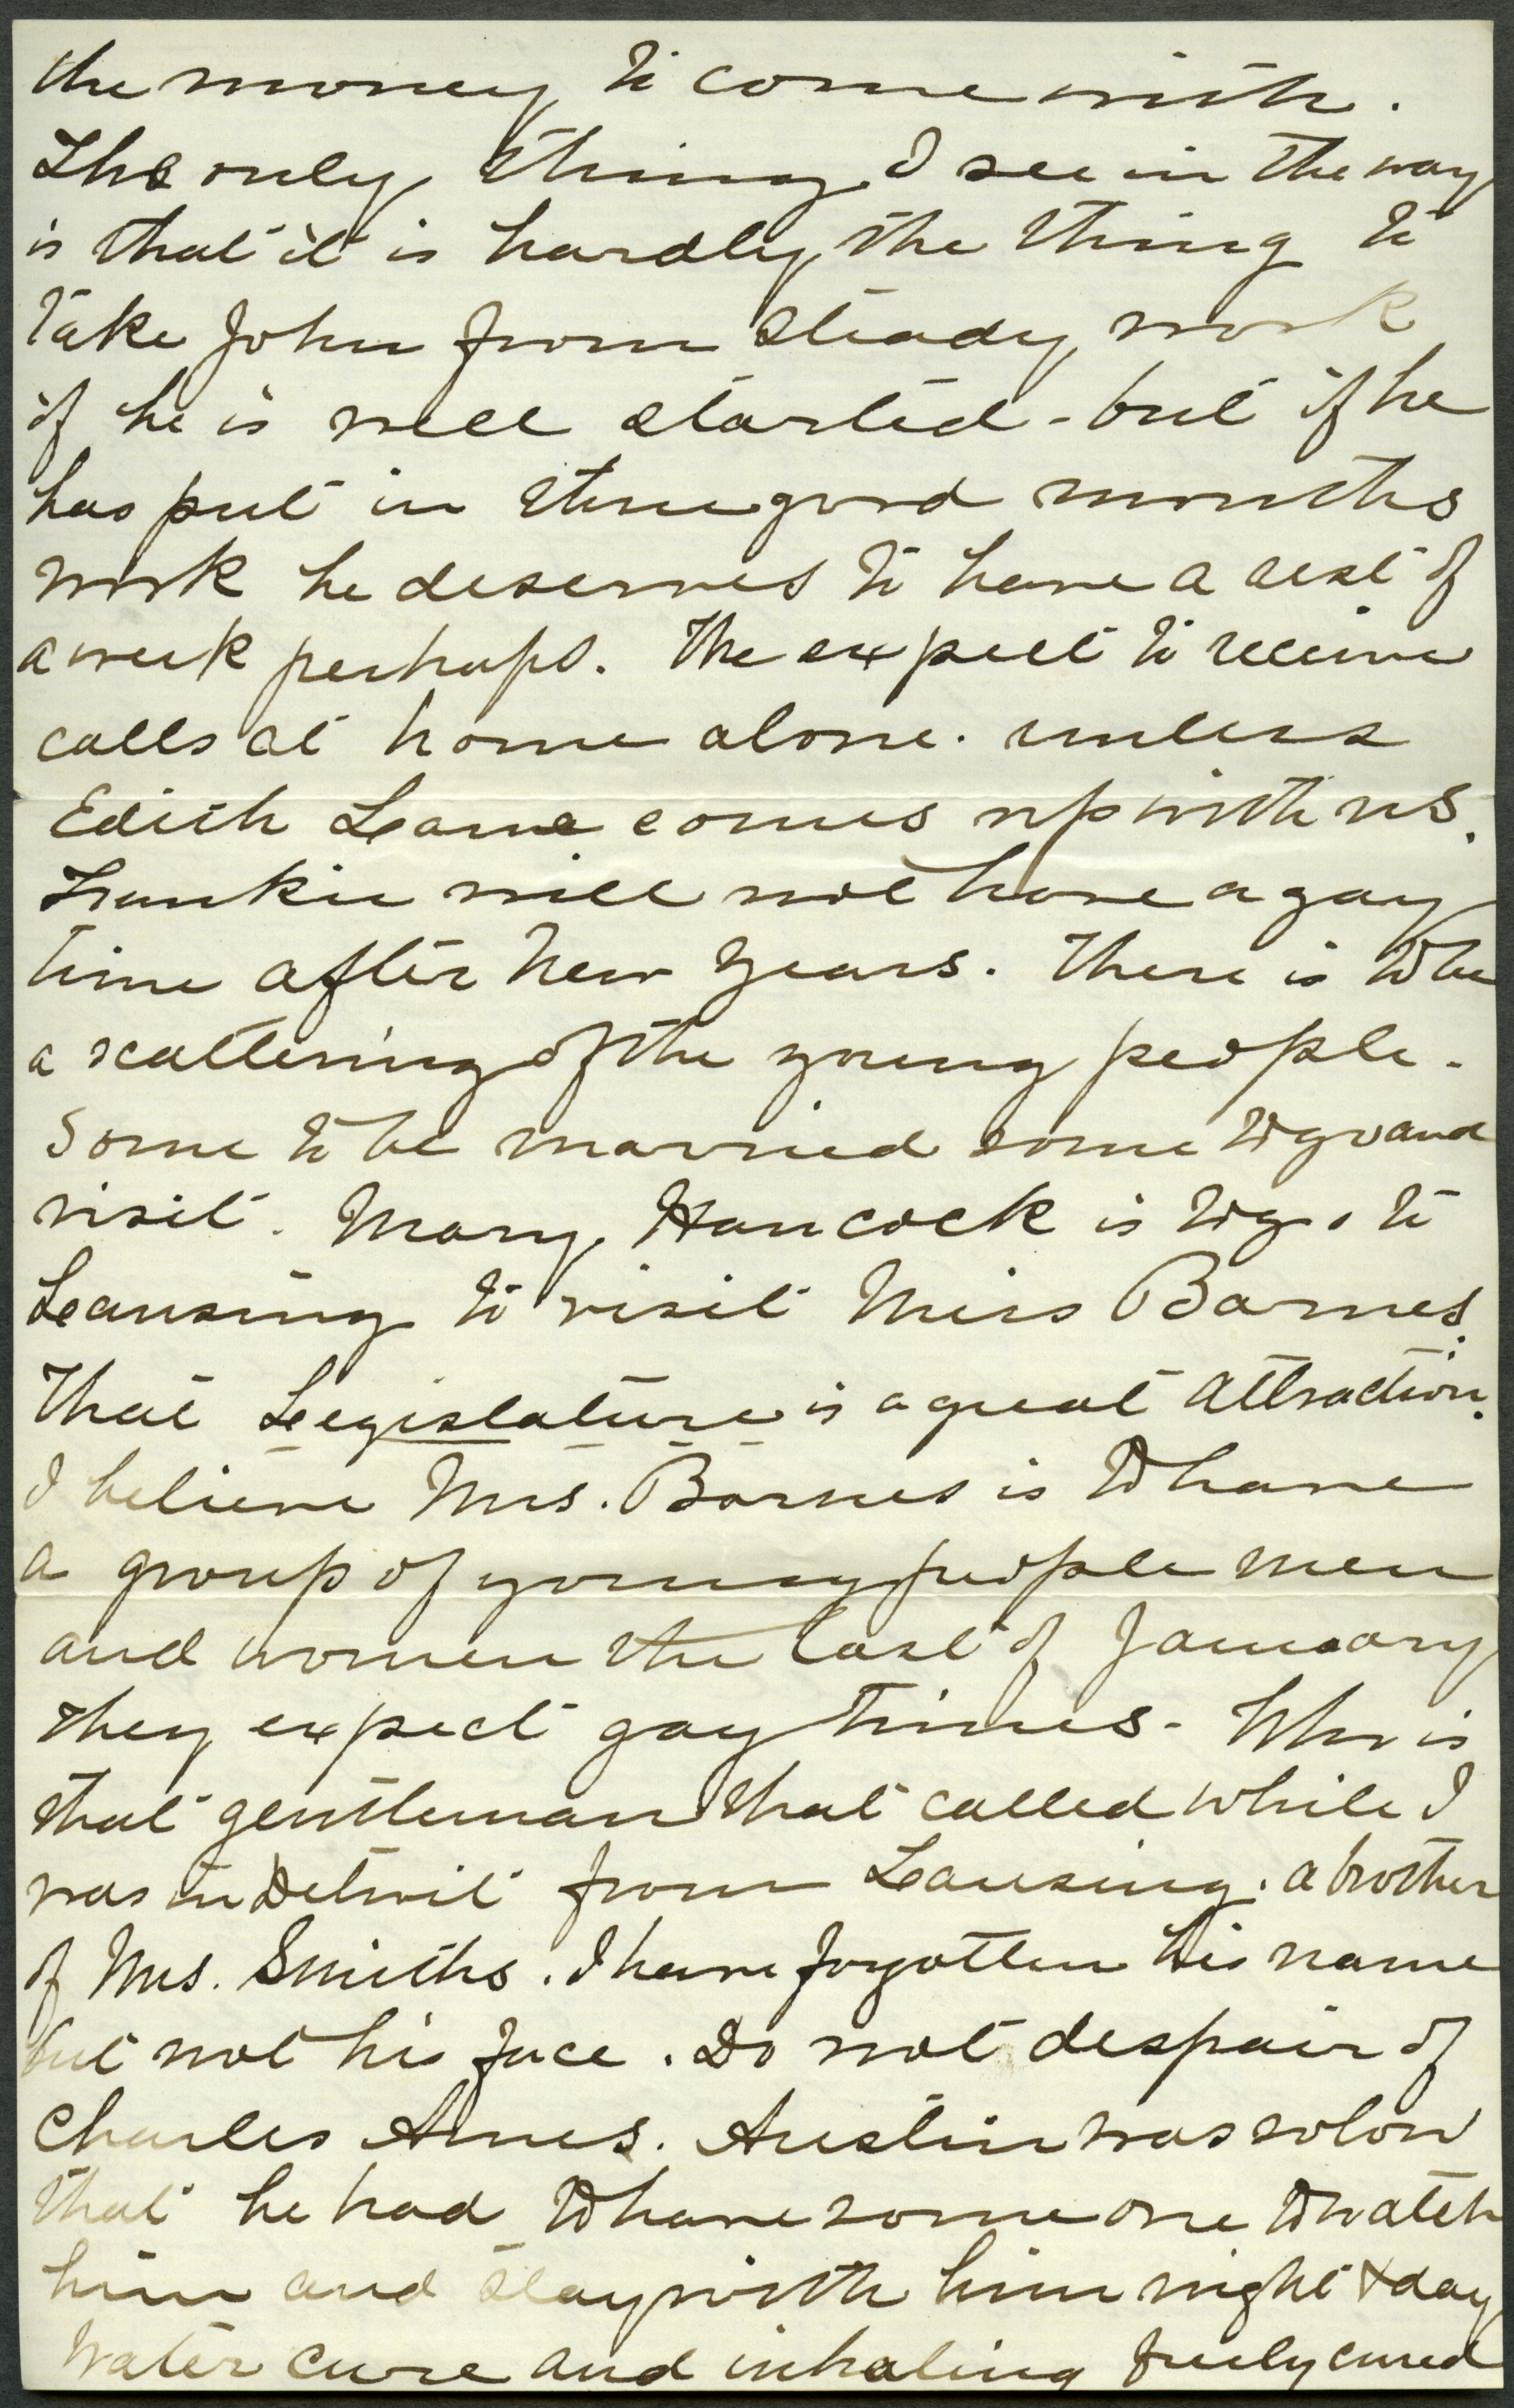 the money to come with.
The only thing I see in the way
is that it is hardly the thing to
take John from steady work
if he is well started - but if he
has put in three good months
work he deserves to have a rest of
a week perhaps. We expect to receive
calls at home alone. unless
Edith Lane comes up with us.
Frankie will not have a gay
time after New Years. There is to be
a scattering of the young people.
Some to be married some to go and
visit. Mary Hancock is to go to
Leansing to visit Miss Barnes.
That Legislature is a great attraction.
I believe Mrs. Barnes is to have
a group of young people men
and women the last of January
they expect gay times - Who is
that gentleman that called while I
was in Detroit from Lansing. a brother
of Mrs. Smiths. I have forgotten his name
but not his face. Do not despair of
Charles Ames. Austin was so low
that he had to have some one to watch
him and stay with him night & day
Water cure and inhaling freely cured